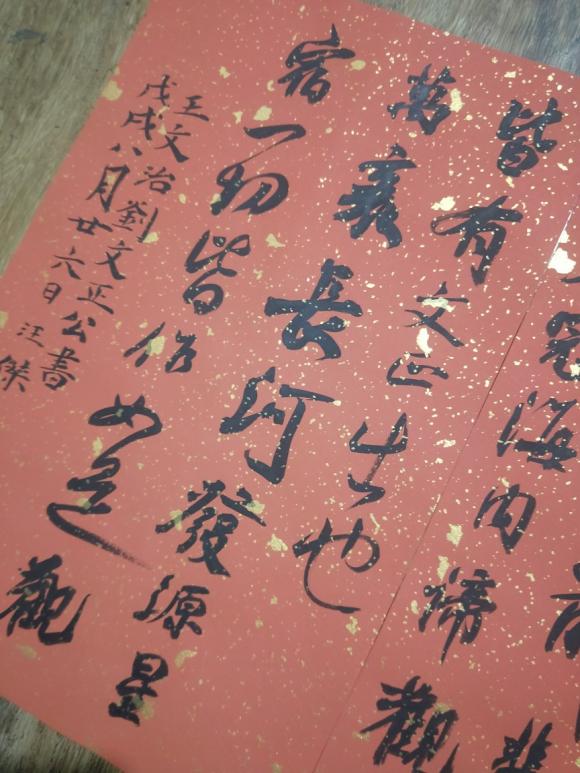 冠海内諦觀
皆有文正出也
萬裏長河發源星
宿一切皆作如是觀
王文治劉文正公書
戊戌八月廿六日汪傑